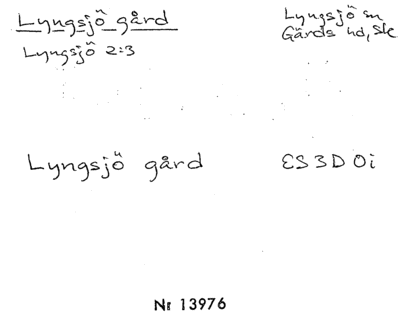 Lyngsjö gård
Lyngsjö 2:3
Lyngsjö sn
Gärds hd, Sk
Lyngsjö gård
ES 3D 0i
Nr 13976